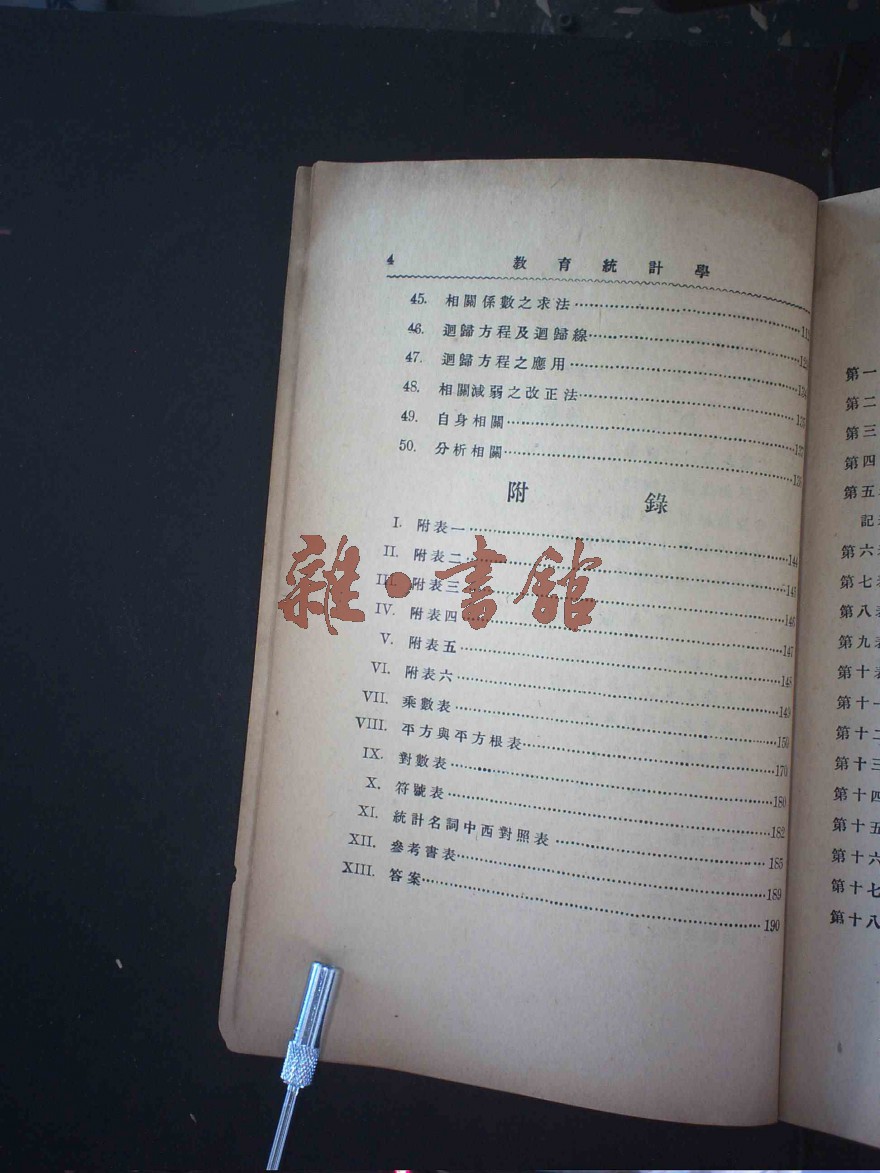 4 教育統計學
45. 相關係數之求法
46. 迴歸方程及迴歸線
47. 迴歸方程之應用 134
48. 相關減弱之改正法 135
49. 自身相關 137
50. 分析相關
附錄
I. 附表一 144
II. 附表二 145
III. 附表三 146
IV. 附表四 147
V. 附表五 148
VI. 附表六 149
VII. 乘數表 150
VIII. 平方與平方根表 170
IX. 對數表 180
X. 符號表 182
XI. 統計名詞中西對照表 185
XII. 參考書表 189
XIII. 答案 190
雜·書館
第一
第二
第三
第四
第五
記
第六
第七
第八
第九
第十
第十一
第十二
第十三
第十四
第十五
第十六
第十七
第十八